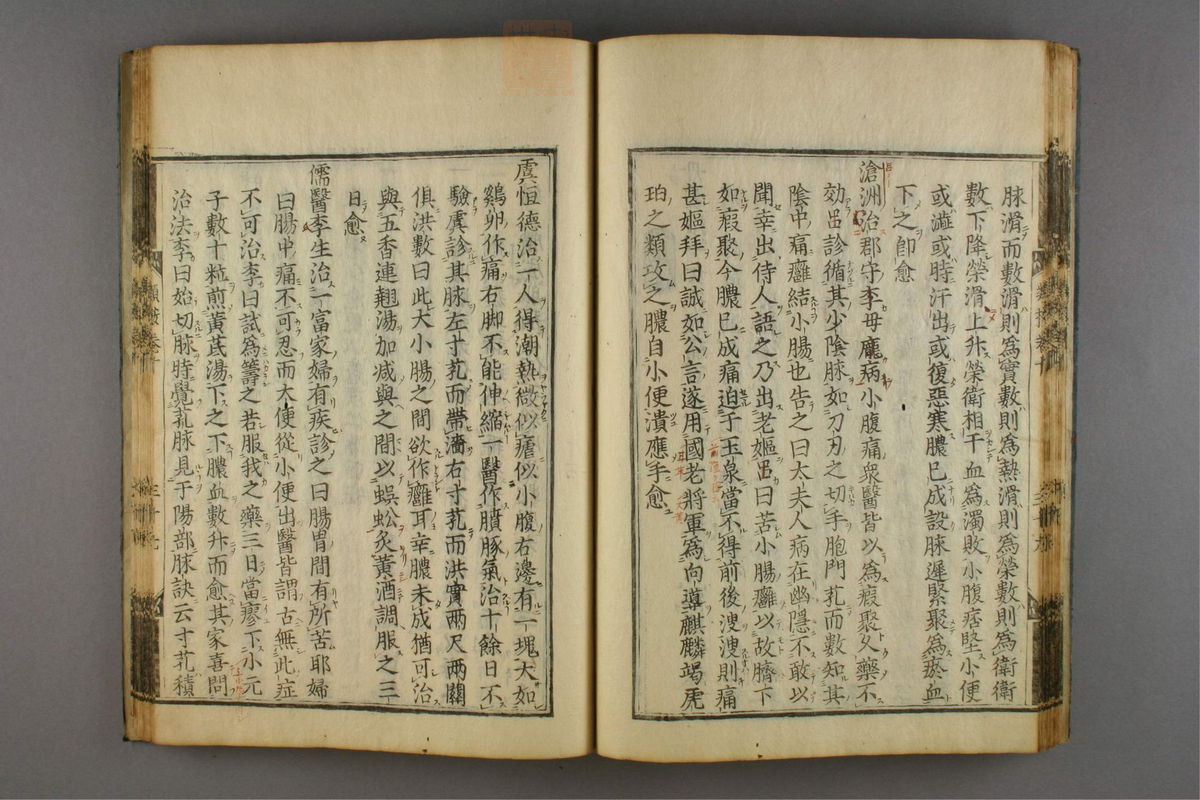 脉滑而數滑則爲實數則爲熱滑則爲榮數則爲衛衛
數下降榮滑上升榮衛相干血爲濁敗小腹痞堅小便
或澁或時汗出或復惡寒膿已成設脉遲緊聚爲瘀血
下之卽愈
滄洲治郡守李母龐病小腹痛衆醫皆以爲瘕聚久藥不
効呂診循其少陰脉如刀刃之切手胞門芤而數知其
陰中痛癰結小腸也告之曰太夫人病在幽隱不敢以
聞幸出侍人語之乃出老嫗呂曰苦小腸癰以故臍下
如瘕聚今膿已成痛迫于玉泉當不得前後溲溲則痛
甚嫗拜曰誠如公言遂用國老將軍爲向導麒麟竭虎
珀之類攻之膿自小便潰應手愈
虞恒德治一人得潮熱微似瘧似小腹右邊有一塊大如
鷄卵作痛右脚不能伸縮一醫作膹豚氣治十餘日不
驗虞診其脉左寸芤而帶濇右寸芤而洪實兩尺兩關
俱洪數曰此大小腸之間欲作癰耳幸膿未成猶可治
與五香連翹湯加减與之間以蜈蚣炙黃酒調服之三
日愈
儒醫李生治一富家婦有疾診之曰腸胃間有所苦耶婦
曰腸中痛不可忍而大便從小便出醫皆謂古無此症
不可治李曰試爲籌之若服我之藥三日當瘳下小元
子數十粒煎黃芪湯下之下膿血數升而愈其家喜問
治法李曰始切脉時覺芤脉見于陽部脉訣云寸芤積